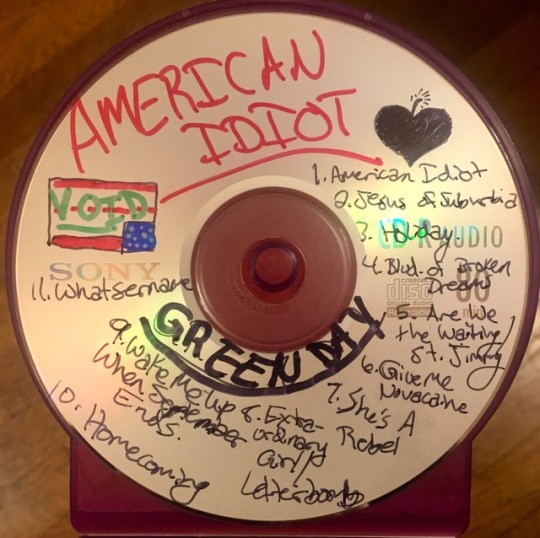 AMERICAN
IDIOT
VOID
1. American Idiot
2. Jesus of Suburbia
3. Holiday
CD-R AUDIO
4. Blvd. of Broken
Dreams
SONY
COMPACT
disc
DIGITAL AUDIO
Recordable
80
min
5. Are We
the Waiting/
St. Jimmy
6. Give Me
Novacaine
7. She's A
Rebel
8. Extra-
ordinary
Girl/
Letterbomb
9. Wake Me Up
When September
Ends.
10. Homecoming
11. Whatsername
GREEN DAY